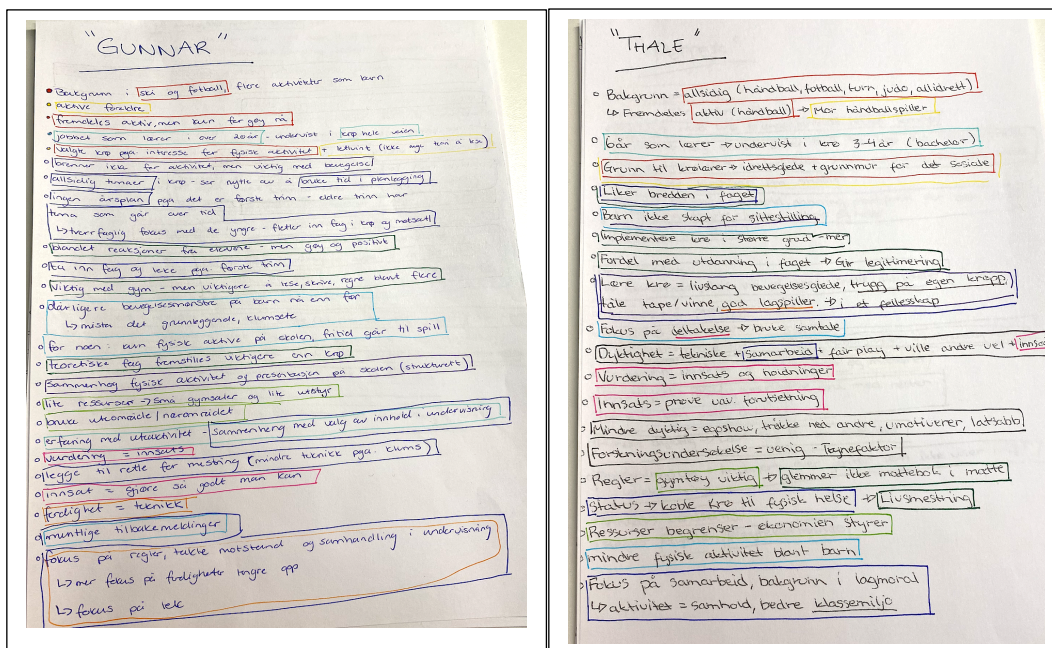 "GUNNAR"
Bakgrunn i ski og fotball, flere aktiviteter som barn
aktive foreldre
fremdeles aktiv, men kun for gøy nå
jobbet som lærer i over 20 år - undervist i krø hele veien
valgte krø pga interesse for fysisk aktivitet + lettvint
brenner ikke for aktivitet, men viktig med bevegelse
allsidig temaer i krø - ser nytte av å bruke tid i planlegging
ingen årsplan pga det er første trinn - eldre trinn har
tema som går over tid
↳ tverrfaglig fokus med de yngre - fletter inn fag i krø og motsatt
blandet reaksjoner fra elevene - men gøy og positivt
ta inn fag og leke pga. første trinn
Viktig med gym - men viktigere å lese, skrive, regne blant flere
dårligere bevegelsesmønstre på barn nå enn før
↳ mista det grunnleggende, klumsete
for noen: kun fysisk aktive på skolen, fritid går til spill
teoretiske fag fremstilles viktigere enn krø
Sammenheng fysisk aktivitet og prestasjon på skolen (strukturert)
lite ressurser → små gymsaler og lite utstyr
bruke uteområde / nærområdet
erfaring med uteaktivitet - sammenheng med valg av innhold i undervisning
vurdering = innsats
legge til rette for mestring (mindre teknikk pga. klums)
innsats = gjøre så godt man kan
ferdighet = teknikk
muntlige tilbakemeldinger
fokus på regler, takle motstand og samhandling i undervisning
↳ mer fokus på ferdigheter lengre opp
↳ fokus på lek
"THALE"
Bakgrunn = allsidig (håndball, fotball, turn, judo, allidrett)
↳ Fremdeles aktiv (håndball) → Mor håndballspiller
6 år som lærer → undervist i krø 3-4 år (bachelor)
Grunn til krølærer → idrettsglede + grunnmur for det sosiale
Liker bredden i faget
Barn ikke skapt for sittestilling
Implementere krø i større grad - mer
Fordel med utdanning i faget → Gir legitimering
Lære krø = livslang bevegelsesglede, trygg på egen kropp,
tåle tape/vinne, god lagspiller, → i et fellesskap
Fokus på deltakelse → bruke samtale
Dyktighet = tekniske + samarbeid + fair play + ville andre vel + innsats
Vurdering = innsats og holdninger
Innsats = prøve uav. forutsetning
Mindre dyktig = egoshow, trakke ned andre, umotiverer, latsabb
Forskningsundersøkelse = uenig - Tegnefaktor
Regler = gymtøy viktig → glemmer ikke mattebok i matte
Status → koble krø til fysisk helse → Livsmestring
Ressurser begrenser - økonomien styrer
mindre fysisk aktivitet blant barn
Fokus på samarbeid, bakgrunn i lagmoral
↳ aktivitet = samhold, bedre klassemiljø